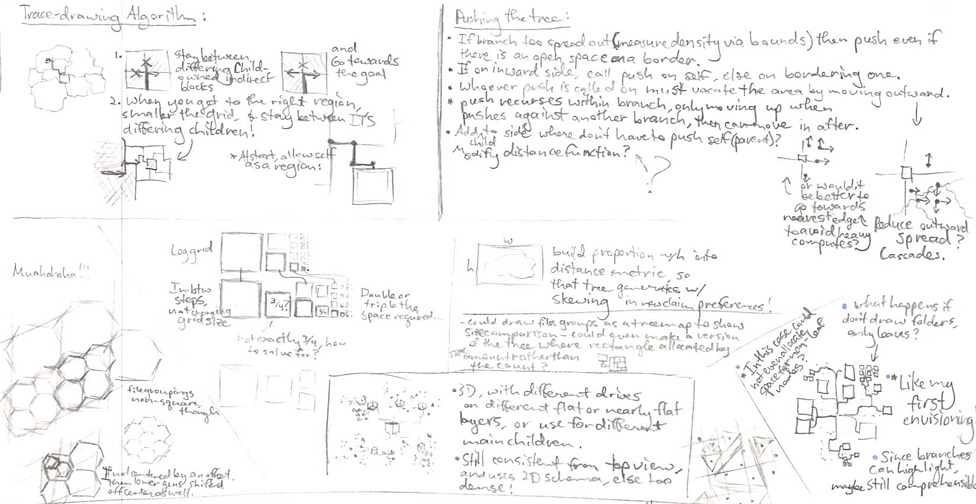 Trace-drawing Algorithm:
1. stay between
differing child-
owned indirect
blocks
and
Go towards
the goal
2. When you get to the right region,
smaller the grid, & stay between ITS
differing children!
*At start, allow self
as a region:
Pushing the tree:
• If branch too spread out (measure density via bounds) then push even if
there is an open space on a border.
• If on inward side, call push on self, else on bordering one.
• Whoever push is called on must vacate the area by moving outward.
* push recurses within branch, only moving up when
pushes against another branch, then can move in after.
• Add to side where don't have to push self (parent)?
child
Modify distance function?
?
or would it
be better to
go towards
nearest edge
to avoid heavy
computes?
Reduce outward
Spread?
Cascades.
Muahahaha!!!
Log grid
In-btw
steps,
not changing
grid size
3/4?
3/4
Double or
triple the
space required...
not exactly 3/4, how
to solve for?
file groupings
non-square,
though
then lower gens shifted
off center as well.
w
h
build proportion w/h into
distance metric, so
that tree generates w/
skewing in new claim preferences!
- could draw file groups as a treemap to show
size comparison - could even make a version
of the tree where rectangle allocated by
amount rather than
the count?
• 3D, with different drives
on different flat or nearly-flat
layers, or use for different
main children.
• Still consistent from top view,
and uses 2D schema, else too
dense!
* In this case could
not even allocate
space for non-leaf
nodes?
• what happens if
don't draw folders,
only leaves?
* Like my
first
envisioning
• Since branches
can highlight,
maybe still comprehensible